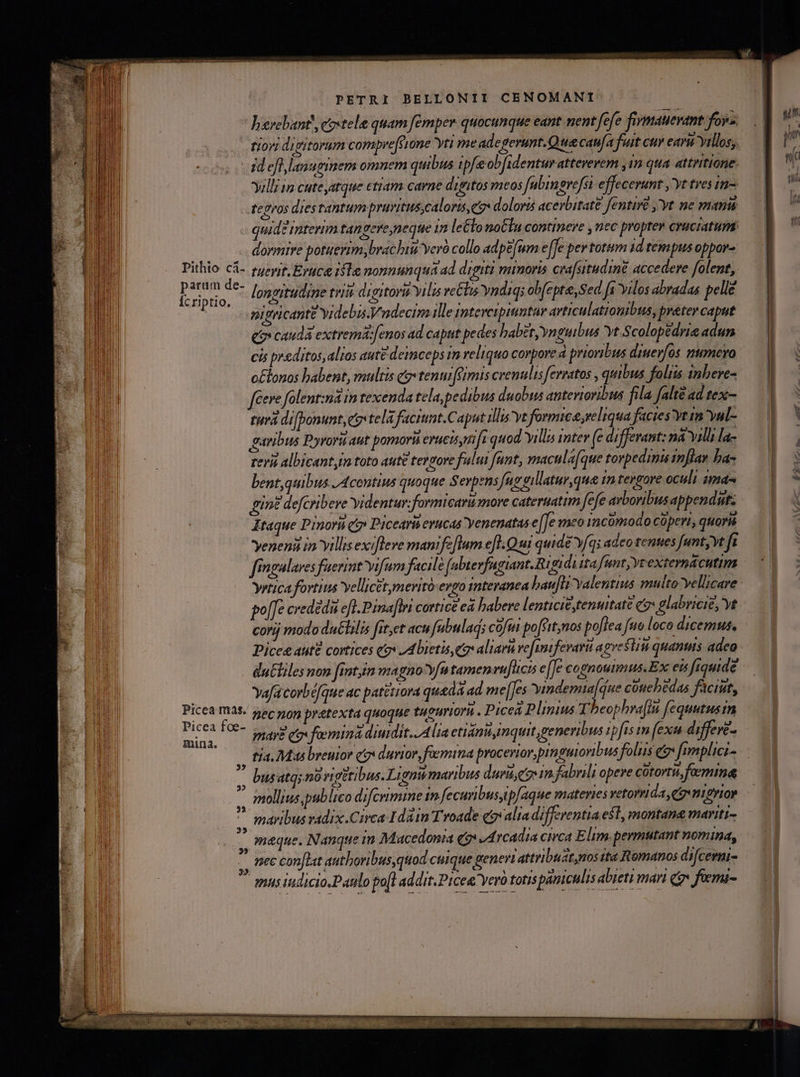 PETRI BELLONII CENOMANI
hærebant, & telæ quam semper quocunque eant nent sese firmauerant fors.
tiori digitorum compressione vti me adegerunt. Quæ causa fuit cur earū villos,
id est, lanuginem omnem quibus ipsæ obsidentur attererem, in qua attritione
villi in cute, atque etiam carne digitos meos subingressi effecerunt, vt tres in-
tegros dies tantum pruritus, caloris, & doloris acerbitatē sentirē, vt ne manū
quidē interim tangere, neque in lecto noctu continere, nec propter cruciatum
dormire potuerim, brachiū verò collo adpēsum esse per totum id tempus oppor-
Pithio cā-
parum de-
scriptio.
tuerit. Erucæ istæ nonnunquā ad digiti minoris crassitudinē accedere solent,
longitudine triū digitorū vilis rectis vndiq; obseptæ, Sed si vilos abradas pellē
nigricantē videbis. Vndecim ille intercipiuntur articulationibus, præter caput
& caudā extremā: senos ad caput pedes habēt, vnguibus vt Scolopēdriæ adun
cis præditos, alios autē deinceps in reliquo corpore à prioribus diuersos numero
octonos habent, multis & tenuissimis crenulis serratos, quibus foliis inhere-
scere solent: nā in texenda tela, pedibus duobus anterioribus fila saltē ad tex-
turā disponunt, & telā faciunt. Caput illis vt formicæ, reliqua facies vt in vul-
garibus Pyrorū aut pomorū erucis, nisi quod villis inter se differant: nā villi la-
terū albicant, in toto autē tergore fului sunt, maculāsque torpedinis instar ha-
bent, quibus Acontius quoque Serpens suggillatur, quæ in tergore oculi ima-
ginē describere videntur: formicarū more cateruatim sese arboribus appendūt.
Itaque Pinorū & Picearū erucas venenatas esse meo incōmodo cōperi, quorū
venenū in villis existere manifestum est. Qui quidē vsq; adeo tenues sunt, vt si
singulares fuerint visum facilè subterfugiant. Rigidi ita sunt, vt externā cutim
vrtica fortius vellicēt, meritò ergo interanea hausti valentius multo vellicare
posse credēdū est. Pinastri corticē eā habere lenticiē, tenuitatē & glabriciē, vt
corij modo ductilis sit, et acu subulaq; cōsui possit, nos postea suo loco dicemus.
Piceæ autē cortices & Abietis, & aliarū resiniferarū agrestiū quamuis adeo
ductiles non sint, in magno vsu tamen rusticis esse cognouimus. Ex eis siquidē
vasa corbēsque ac patētiora quædā ad messes vindemiasque conehēdas faciūt,
Picea mas.
Picea fœ-
mina.
nec non prætexta quoque tuguriorū. Piceā Plinius Theophrastū sequutus in
marē & fœminā diuidit. Alia etiānū, inquit, generibus ipsis in sexu differē-
tia. Mas breuior & durior, fœmina procerior, pinguioribus foliis & simplici-
” bus atq; nō rigētibus. Lignū maribus durū, & in fabrili opere cōtortū, fœminæ
” mollius, publico discrimine in securibus, ipsaque materies retorrida, & nigrior
” maribus radix. Circa Idā in Troade & alia differentia est, montanæ mariti-
” mæque. Nanque in Macedonia & Arcadia circa Elim permutant nomina,
” nec constat authoribus, quod cuique generi attribuāt, nos ita Romanos discerni-
” mus iudicio. Paulo post addit. Piceæ verò totis pāniculis abieti mari & fœmi-